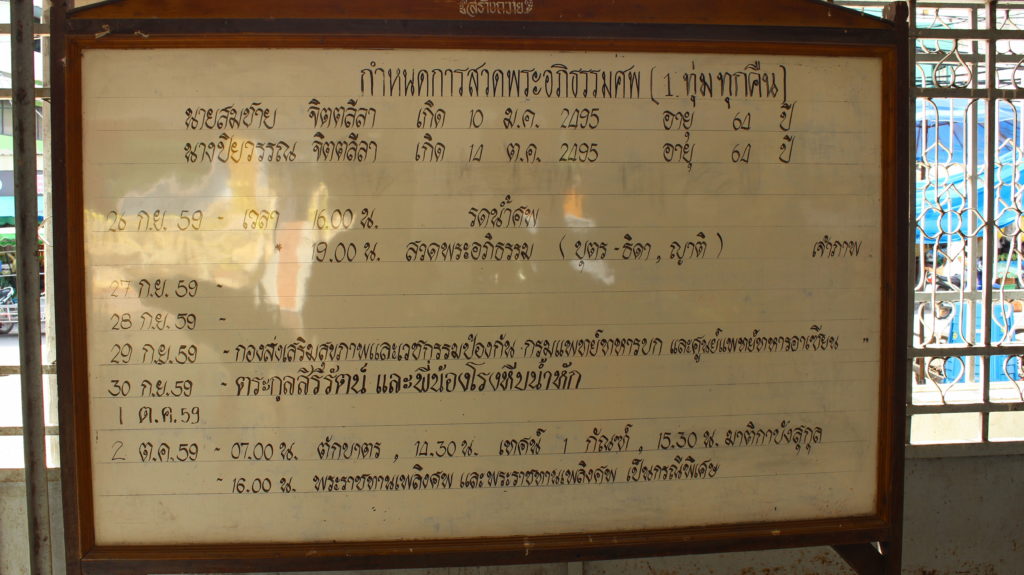 สร้างถวาย
กำหนดการสวดพระอภิธรรมศพ (1 ทุ่มทุกคืน)
นายสมชาย จิตตลีลา เกิด 10 ม.ค. 2495 อายุ 64 ปี
นางปิยวรรณ จิตตลีลา เกิด 14 ต.ค. 2495 อายุ 64 ปี
26 ก.ย. 59 - เวลา 16.00 น. รดน้ำศพ
" 19.00 น. สวดพระอภิธรรม (บุตร-ธิดา, ญาติ) เจ้าภาพ
27 ก.ย. 59 -
28 ก.ย. 59 -
29 ก.ย. 59 - กองส่งเสริมสุขภาพและเวชกรรมป้องกัน กรมแพทย์ทหารบก และศูนย์แพทย์ทหารอาเซียน "
30 ก.ย. 59 - ตระกูลสิริรัตน์ และพี่น้องโรงหีบน้ำหัก
1 ต.ค. 59
2 ต.ค. 59 - 07.00 น. ตักบาตร, 14.30 น. เทศน์ 1 กัณฑ์, 15.30 น. มาติกาบังสุกุล
- 16.00 น. พระราชทานเพลิงศพ และพระราชทานเพลิงศพ เป็นกรณีพิเศษ